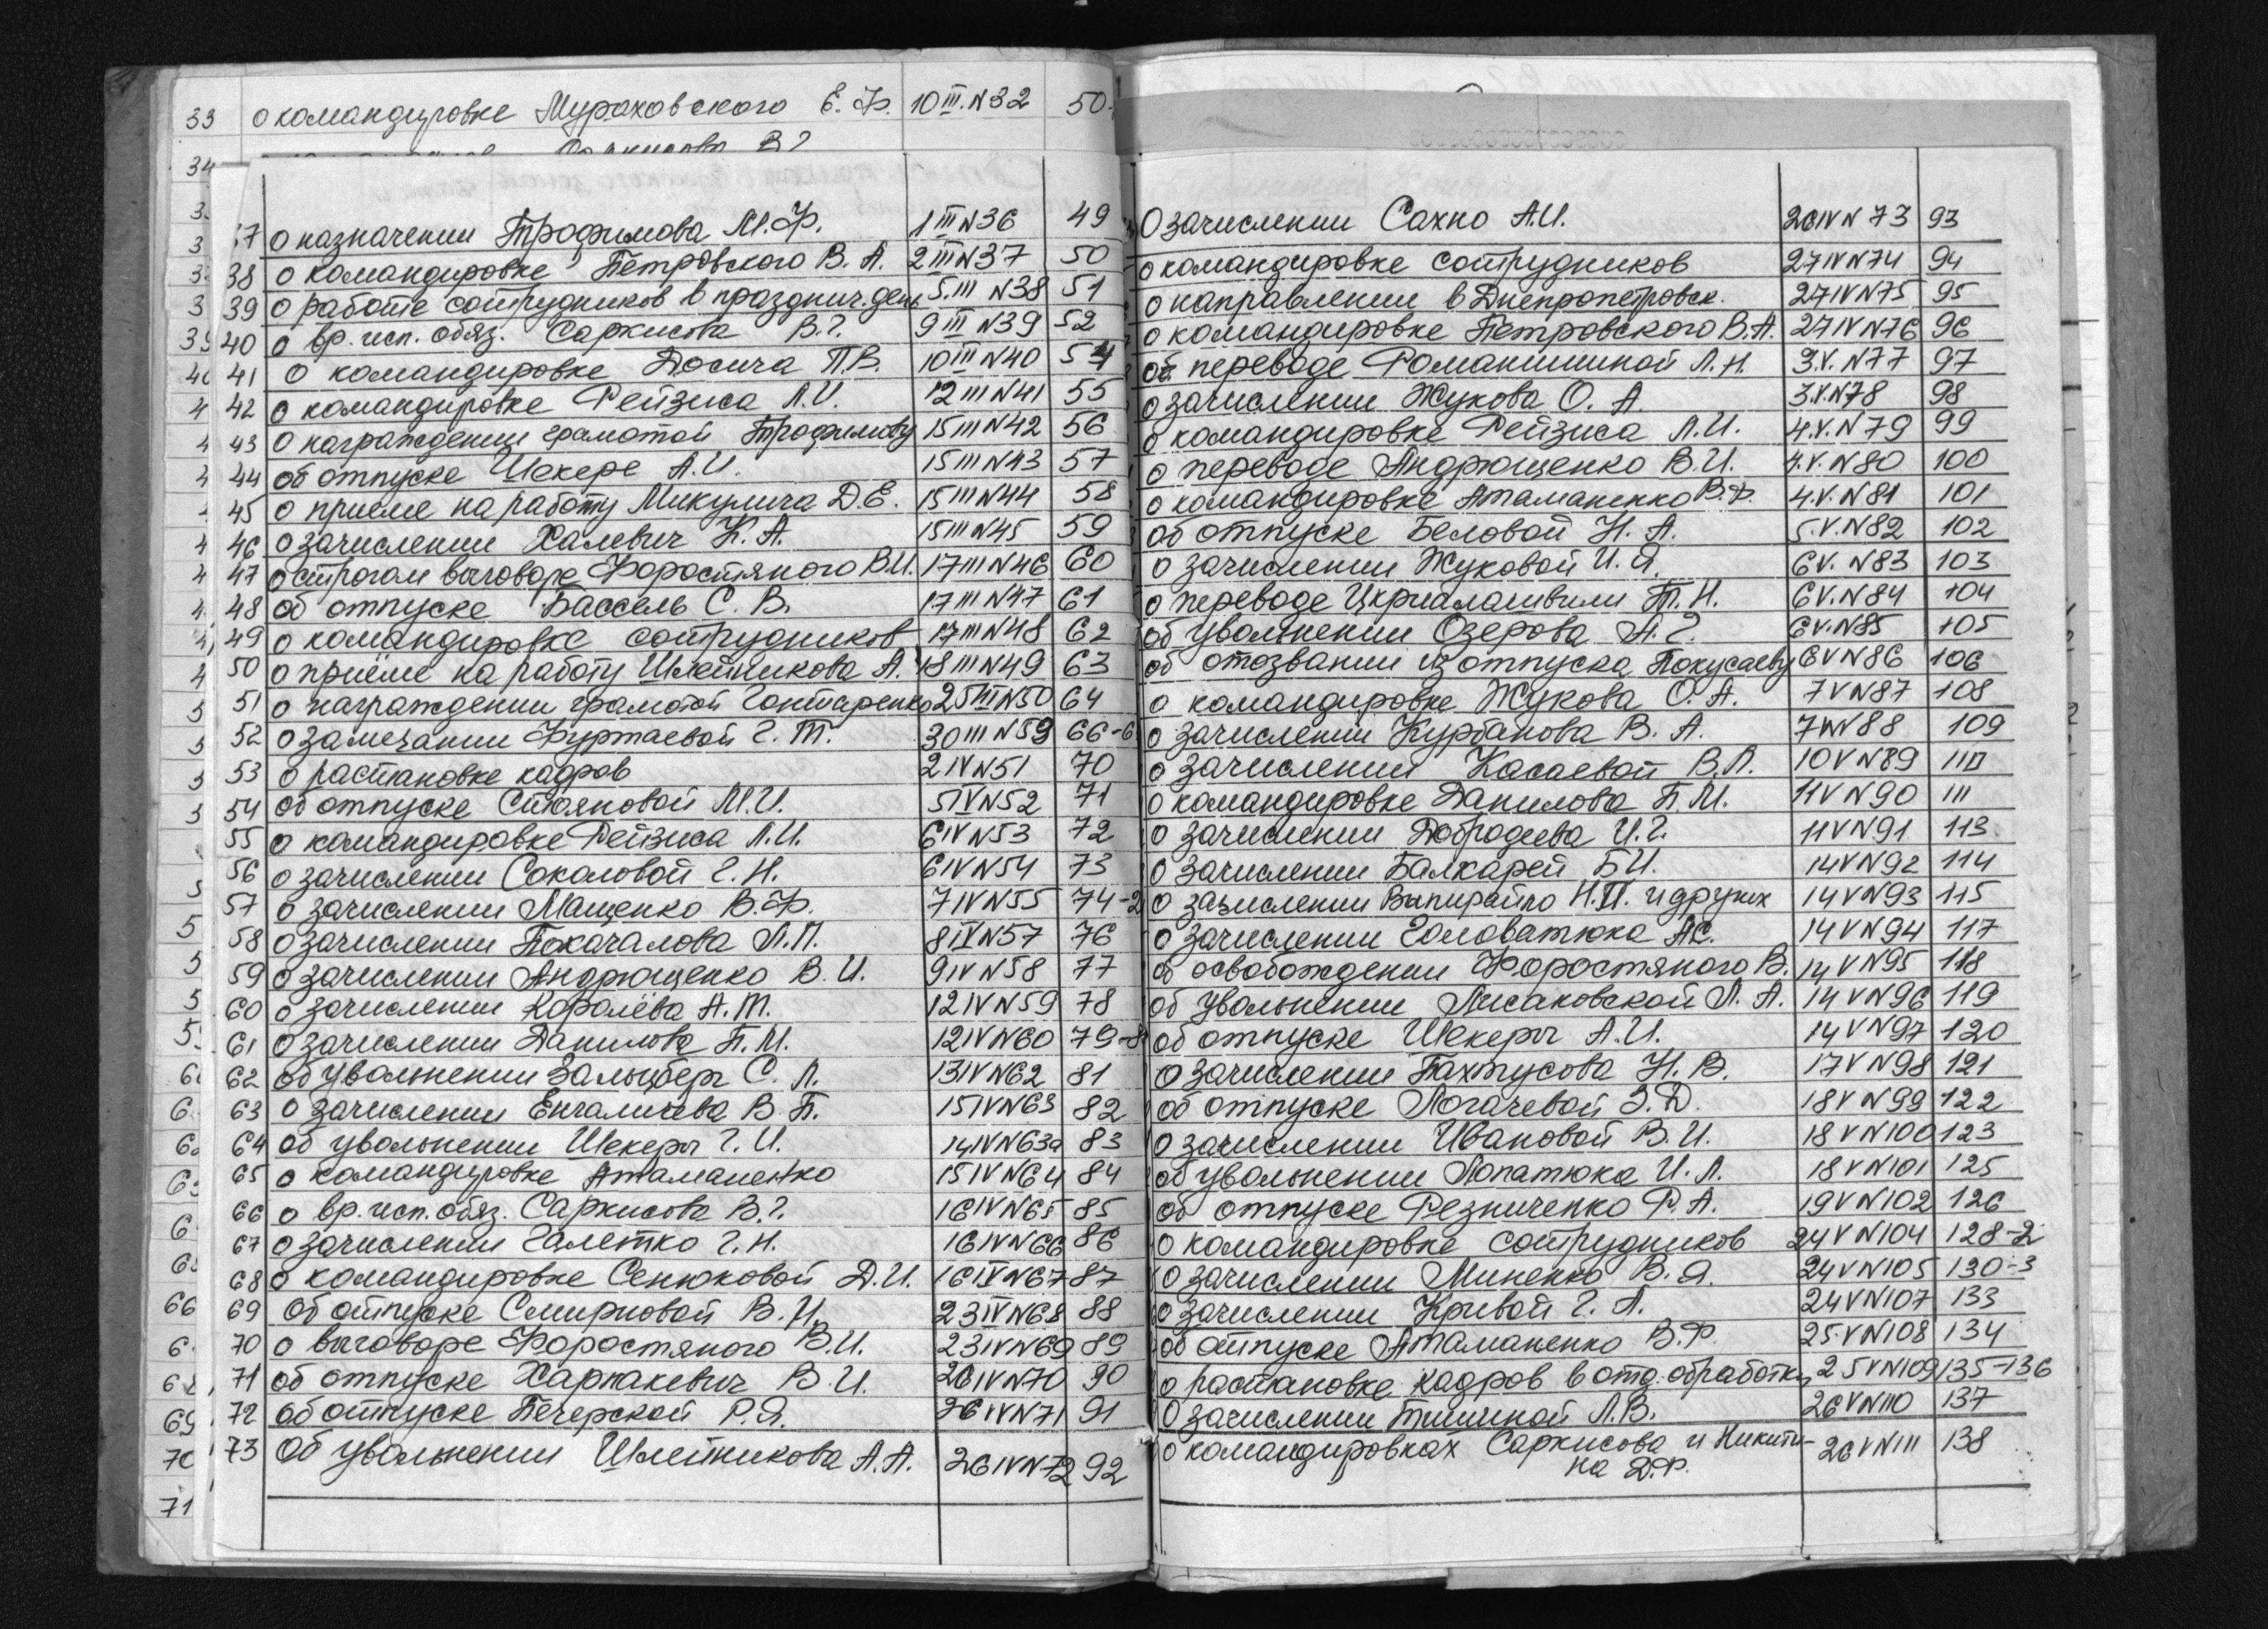 33 о командировке Мураховского Е. Ф. 10 III. N32 50
34
37 о назначении Трофимова М.Ф. 1 III N36 49
38 о командировке Петровского В. А. 2 III N37 50
39 о работе сотрудников в празднич. день 5.III N38 51
40 о вр. исп. обяз. Саркисова В.Г. 9 III N39 52
41 о командировке Досича П.В. 10 III N40 54
42 о командировке Рейзиса Л.И. 12 III N41 55
43 о награждении грамотой Трофимову 15 III N42 56
44 об отпуске Шекере А.И. 15 III N43 57
45 о приеме на работу Микулича Д.Е. 15 III N44 58
46 о зачислении Халевич К. А. 15 III N45 59
47 о строгом выговоре Форостяного В.И. 17 III N46 60
48 об отпуске Бассель С. В. 17 III N47 61
49 о командировке сотрудников 17 III N48 62
50 о приёме на работу Шлейникова А. 18 III N49 63
51 о награждении грамотой Гонтаренко 25 III N50 64
52 о замечании Фуртаевой Г. Т. 30 III N59 66-6
53 о растановке кадров 2 IV N51 70
54 об отпуске Стояновой М.И. 5 IV N52 71
55 о командировке Рейзиса Л.И. 6 IV N53 72
56 о зачислении Соколовой Г. Н. 6 IV N54 73
57 о зачислении Мащенко В.Ф. 7 IV N55 74-2
58 о зачислении Покачалова Л.П. 8 IV N57 76
59 о зачислении Андрющенко В. И. 9 IV N58 77
60 о зачислении Королёва А.Т. 12 IV N59 78
61 о зачислении Данилова П.М. 12 IV N60 79-8
62 об увольнении Зальцберг С. Л. 13 IV N62 81
63 о зачислении Енгаличева В.П. 15 IV N63 82
64 об увольнении Шекеры Г. И. 14 IV N63а 83
65 о командировке Атаманенко 15 IV N64 84
66 о вр. исп. обяз. Саркисова В.Г. 16 IV N65 85
67 о зачислении Галетко Г.Н. 16 IV N66 86
68 о командировке Сенюковой Д.И. 16 IV N67 87
69 Об отпуске Смирновой В.И. 23 IV N68 88
70 о выговоре Форостяного В.И. 23 IV N69 89
71 об отпуске Харпакевич В.И. 26 IV N70 90
72 об отпуске Печерской Р.Я. 26 IV N71 91
73 Об увольнении Шлейникова А.А. 26 IV N72 92
71
О зачислении Сахно А.И. 26 IV N 73 93
о командировке сотрудников 27 IV N74 94
о направлении в Днепропетровск. 27 IV N75 95
о командировке Петровского В.А. 27 IV N76 96
об переводе Романишиной Л.Н. 3.V. N77 97
о зачислении Жукова О. А. 3.V.N78 98
о командировке Рейзиса Л.И. 4.V. N79 99
о переводе Андрющенко В.И. 4.V. N80 100
о командировке Атаманенко В.Ф. 4.V. N81 101
об отпуске Беловой Н. А. 5.V. N82 102
о зачислении Жуковой И. Я. 6 V. N83 103
о переводе Цкриалашвили Т. Н. 6 V. N84 104
об увольнении Озерова А.Г. 6 V. N85 105
об отозвании из отпуска Покусаеву 6 V N86 106
о командировке Жукова О. А. 7 V N87 108
о зачислении Курбанова В. А. 7 V N88 109
о зачислении Касаевой В.Л. 10 V N89 110
о командировке Данилова П.М. 11 V N90 111
о зачислении Добродеева И.Г. 11 V N91 113
о зачислении Балкарей Б.И. 14 V N92 114
о зачислении Выпирайло Н.П. и других 14 V N93 115
о зачислении Головатюка А.С. 14 V N94 117
об освобождении Форостяного В. 14 V N95 118
об увольнении Лисаковской Л. А. 14 V N96 119
об отпуске Шекеры А.И. 14 V N97 120
о зачислении Пахтусова Н. В. 17 V N98 121
об отпуске Логачевой З.Д. 18 V N99 122
о зачислении Ивановой В.И. 18 V N100 123
об увольнении Лопатюка И.Л. 18 V N101 125
об отпуске Резниченко Р.А. 19 V N102 126
о командировке сотрудников 24 V N104 128-2
о зачислении Миненко В.Я. 24 V N105 130-3
о зачислении Кривой Г. Л. 24 V N107 133
об отпуске Атаманенко В.Ф. 25 V N108 134
о растановке кадров в отд. обработки 25 V N109 135-136
О зачислении Тишиной Л.В. 26 V N110 137
о командировках Саркисова и Никити- 26 V N111 138
на Д.Ф.